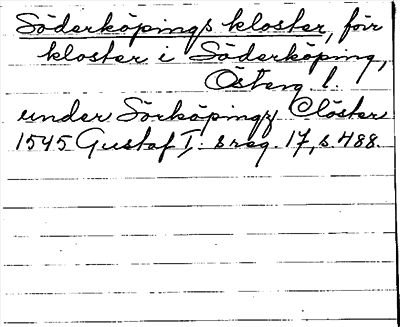 Söderköpings kloster, förr
kloster i Söderköping,
Österg. l.
under Sörköpingx Clöster
1545 Gustaf I:s reg. 17, s. 488.